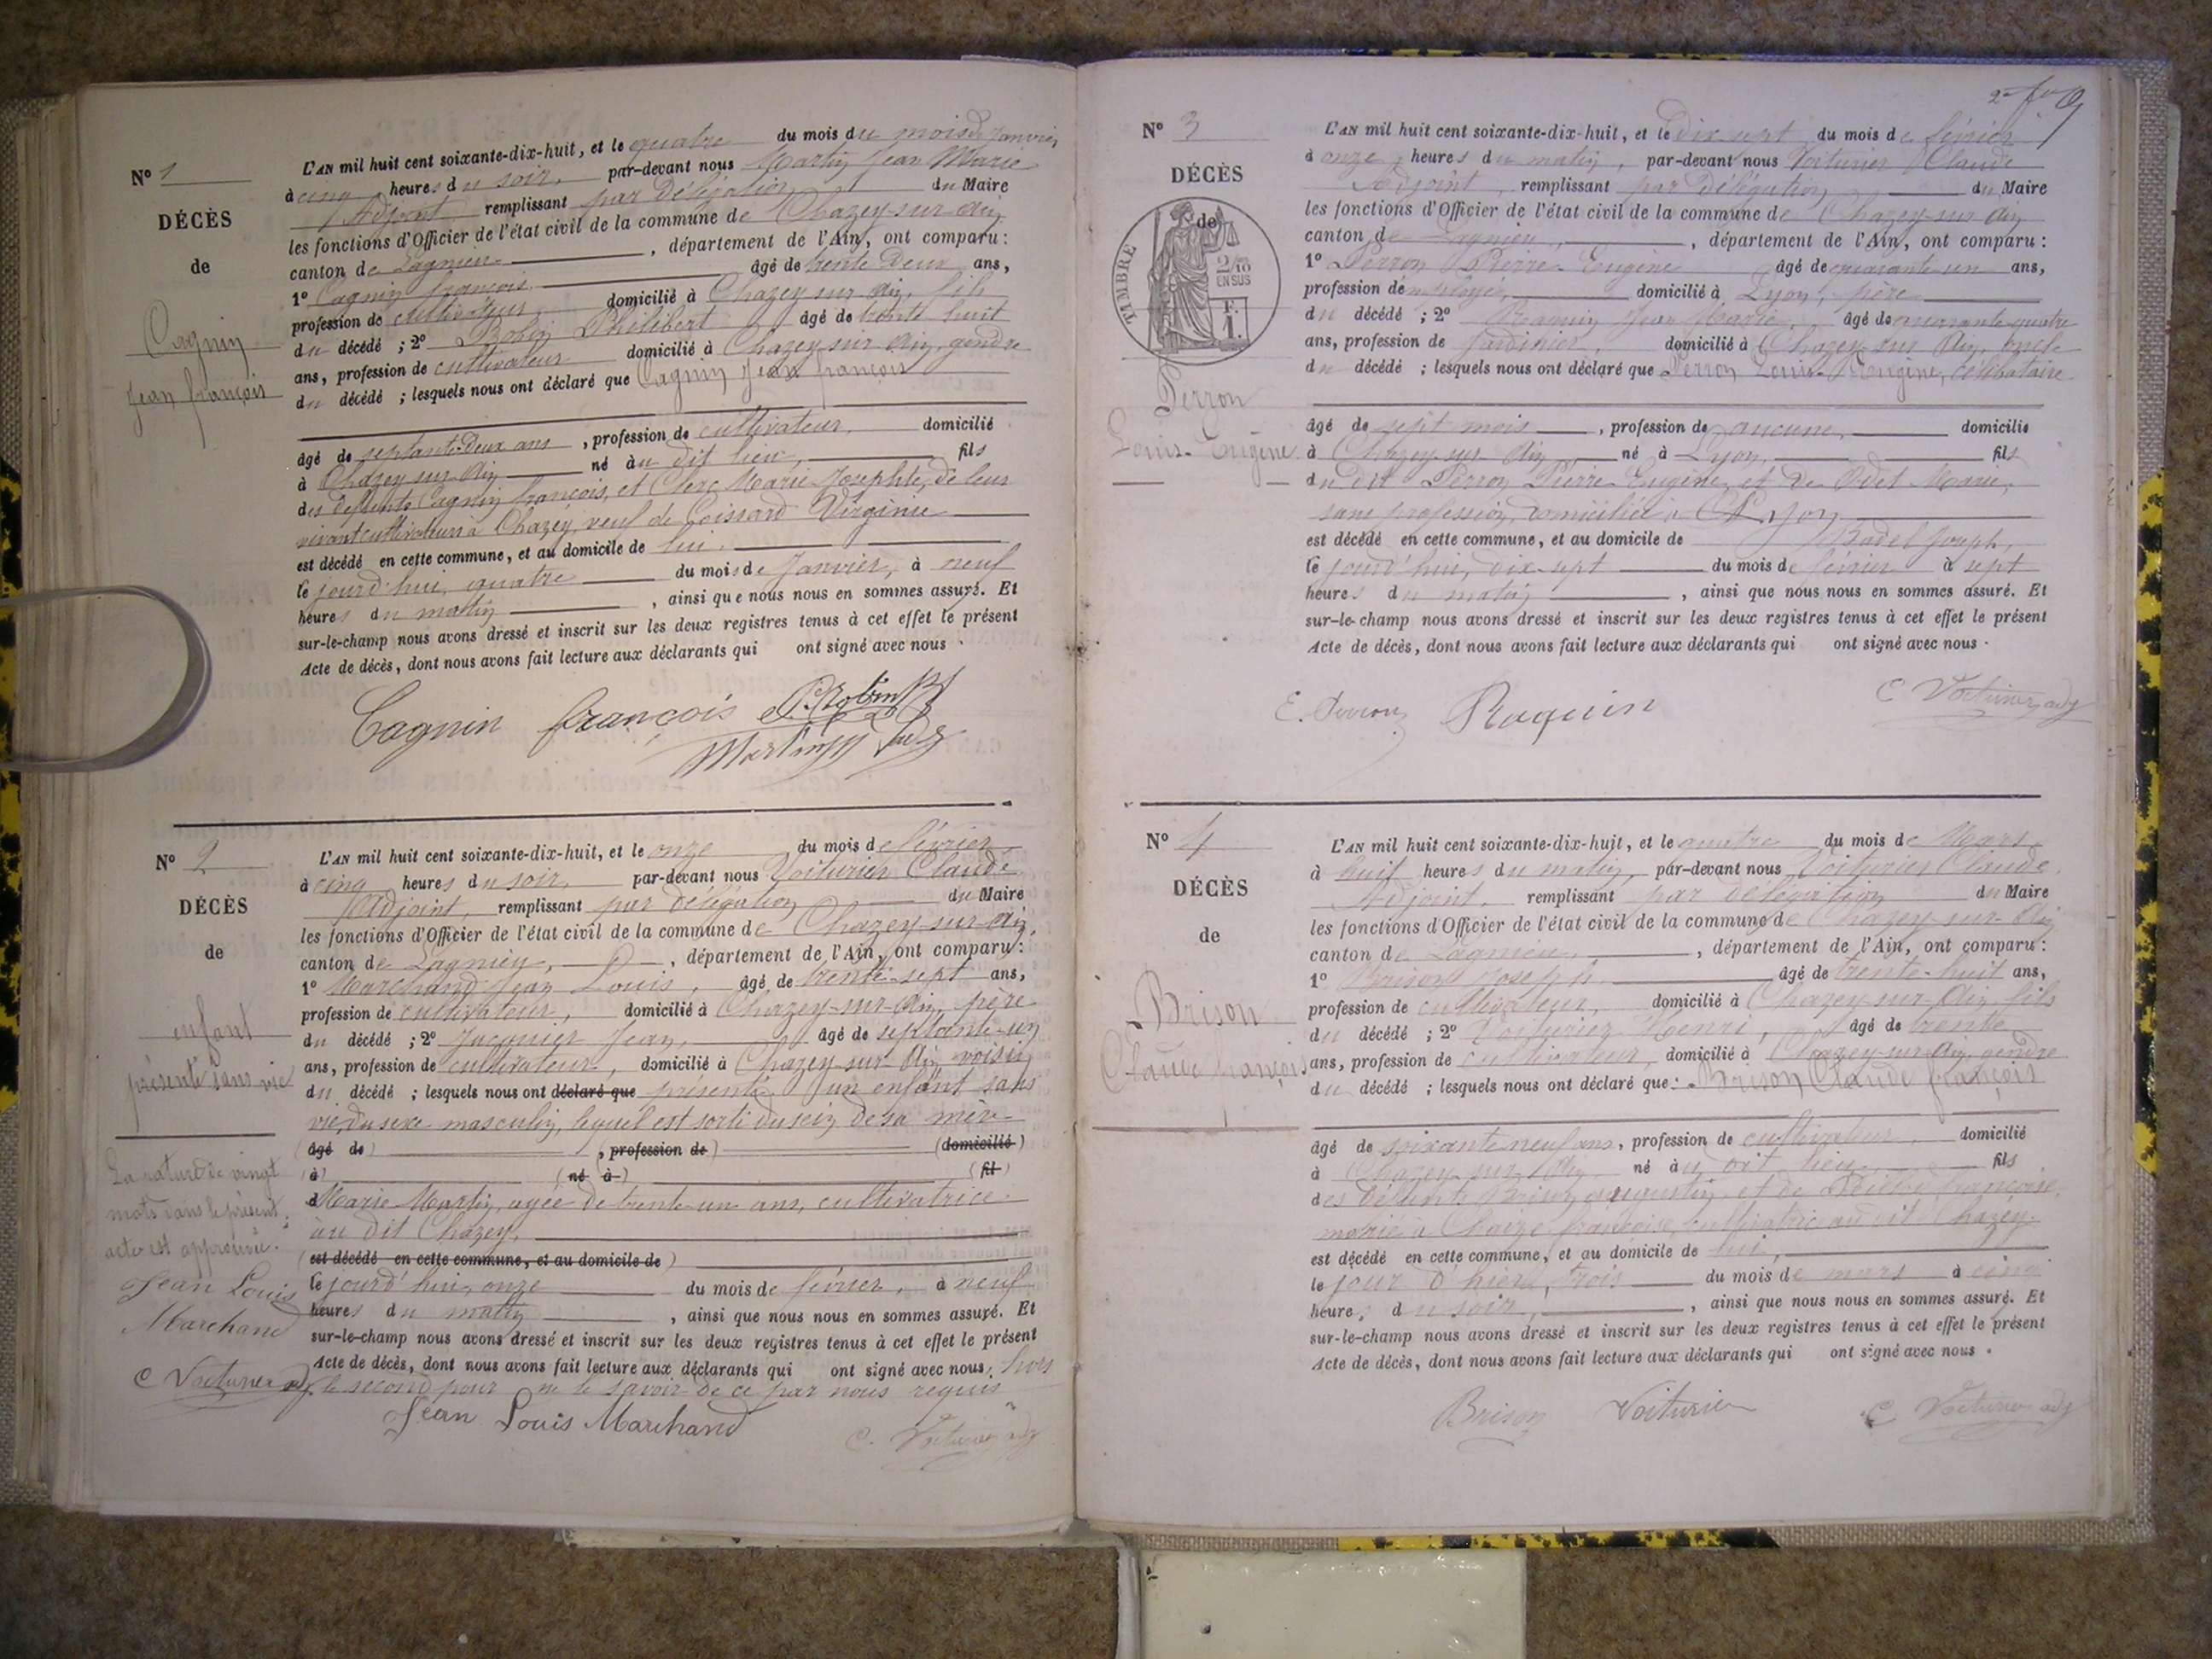 Nº 1
DÉCÈS
de
Cagnin
Jean françois
L'AN mil huit cent soixante-dix-huit, et le quatre du mois du mois de Janvier
à cinq heures du soir, par-devant nous Martin Jean Marie
Adjoint remplissant par Délégation du Maire
les fonctions d'Officier de l'état civil de la commune de Chazey-sur-Ain
canton de Lagnieu , département de l'Ain, ont comparu :
1º Cagnin françois âgé de trente Deux ans,
profession de cultivateur domicilié à Chazey sur Ain, fils
du décédé ; 2º Robin Philibert âgé de trente huit
ans, profession de cultivateur domicilié à Chazey-sur-Ain, gendre
du décédé ; lesquels nous ont déclaré que Cagnin Jean françois
âgé de septante-Deux ans , profession de cultivateur domicilié
à Chazey sur Ain né au dit lieu, fils
des deffunts Cagnin françois, et Clerc Marie Josephte, de leur
vivant cultivateurs à Chazey, veuf de Virginie
est décédé en cette commune, et au domicile de lui.
le jourd'hui, quatre du mois de Janvier, à neuf
heures du matin , ainsi que nous nous en sommes assuré. Et
sur-le-champ nous avons dressé et inscrit sur les deux registres tenus à cet effet le présent
Acte de décès, dont nous avons fait lecture aux déclarants qui ont signé avec nous .
Cagnin françois P. Robin
Martin
Nº 2
DÉCÈS
de
enfant
présenté sans vie
La rature de vingt
mots dans le présent
acte est approuvée.
Jean Louis
Marchand
C Voiturier adj
L'AN mil huit cent soixante-dix-huit, et le onze du mois de février
à cinq heures du soir, par-devant nous Voiturier Claude
Adjoint, remplissant par Délégation du Maire
les fonctions d'Officier de l'état civil de la commune de Chazey-sur-Ain,
canton de Lagnieu, , département de l'Ain, ont comparu :
1º Marchand Jean Louis, âgé de trente-sept ans,
profession de cultivateur, domicilié à Chazey-sur-Ain, père
du décédé ; 2º Jacquier Jean, âgé de septante-un
ans, profession de cultivateur, domicilié à Chazey-sur-Ain voisin
du décédé ; lesquels nous ont déclaré que présenté un enfant sans
vie, du sexe masculin, lequel est sorti du sein de sa mère
(âgé de) (, profession de) (domicilié)
(à) (né à) (fil)
Marie Martin, agée de trente-un ans, cultivatrice
au dit Chazey,
(est décédé en cette commune, et au domicile de)
le jourd'hui, onze du mois de février, à neuf
heures du matin , ainsi que nous nous en sommes assuré. Et
sur-le-champ nous avons dressé et inscrit sur les deux registres tenus à cet effet le présent
Acte de décès, dont nous avons fait lecture aux déclarants qui ont signé avec nous, hors
le second pour ne le savoir de ce par nous requis
Jean Louis Marchand
C. Voiturier adj
Nº 3
DÉCÈS
de
TIMBRE
2/10
EN SUS
F.
1.
Perron
Louis-Eugène
L'AN mil huit cent soixante-dix-huit, et le dix sept du mois de février
à onze heures du matin, par-devant nous Voiturier Claude
Adjoint, remplissant par Délégation du Maire
les fonctions d'Officier de l'état civil de la commune de Chazey-sur-Ain
canton de Lagnieu, , département de l'Ain, ont comparu :
1º Perron Pierre-Eugène âgé de quarante-un ans,
profession de employé, domicilié à Lyon, père
du décédé ; 2º Jean Marie, âgé de quarante-quatre
ans, profession de Jardinier, domicilié à Chazey-sur-Ain, oncle
du décédé ; lesquels nous ont déclaré que Perron Louis-Eugène, célibataire
âgé de sept mois , profession de aucune, domicilié
à Chazey-sur-Ain, né à Lyon, fils
du dit Perron Pierre-Eugène, et de Odet Marie,
sans profession, domiciliée à Lyon
est décédé en cette commune, et au domicile de Badel Joseph,
le jourd'hui, dix-sept du mois de février à sept
heures du matin , ainsi que nous nous en sommes assuré. Et
sur-le-champ nous avons dressé et inscrit sur les deux registres tenus à cet effet le présent
Acte de décès, dont nous avons fait lecture aux déclarants qui ont signé avec nous .
E. Perron Raquin C Voiturier adj
Nº 4
DÉCÈS
de
Brison
Claude françois
L'AN mil huit cent soixante-dix-huit, et le quatre du mois de Mars
à huit heures du matin, par-devant nous Voiturier Claude,
Adjoint, remplissant par Délégation du Maire
les fonctions d'Officier de l'état civil de la commune de Chazey-sur-Ain
canton de Lagnieu, , département de l'Ain, ont comparu :
1º Brison Joseph âgé de trente-huit ans,
profession de cultivateur, domicilié à Chazey-sur-Ain fils
du décédé ; 2º Voiturier Henri, âgé de trente
ans, profession de cultivateur, domicilié à Chazey-sur-Ain gendre
du décédé ; lesquels nous ont déclaré que : Brison Claude françois
âgé de soixante neuf ans, profession de cultivateur domicilié
à Chazey-sur-Ain né au dit lieu, fils
des défunts Brison augustin et de françoise,
marié à françoise, cultivatrice au dit Chazey.
est décédé en cette commune, et au domicile de lui,
le jour d'hier, trois du mois de mars à cinq
heures du soir, , ainsi que nous nous en sommes assuré. Et
sur-le-champ nous avons dressé et inscrit sur les deux registres tenus à cet effet le présent
Acte de décès, dont nous avons fait lecture aux déclarants qui ont signé avec nous .
Brison Voiturier C Voiturier adj